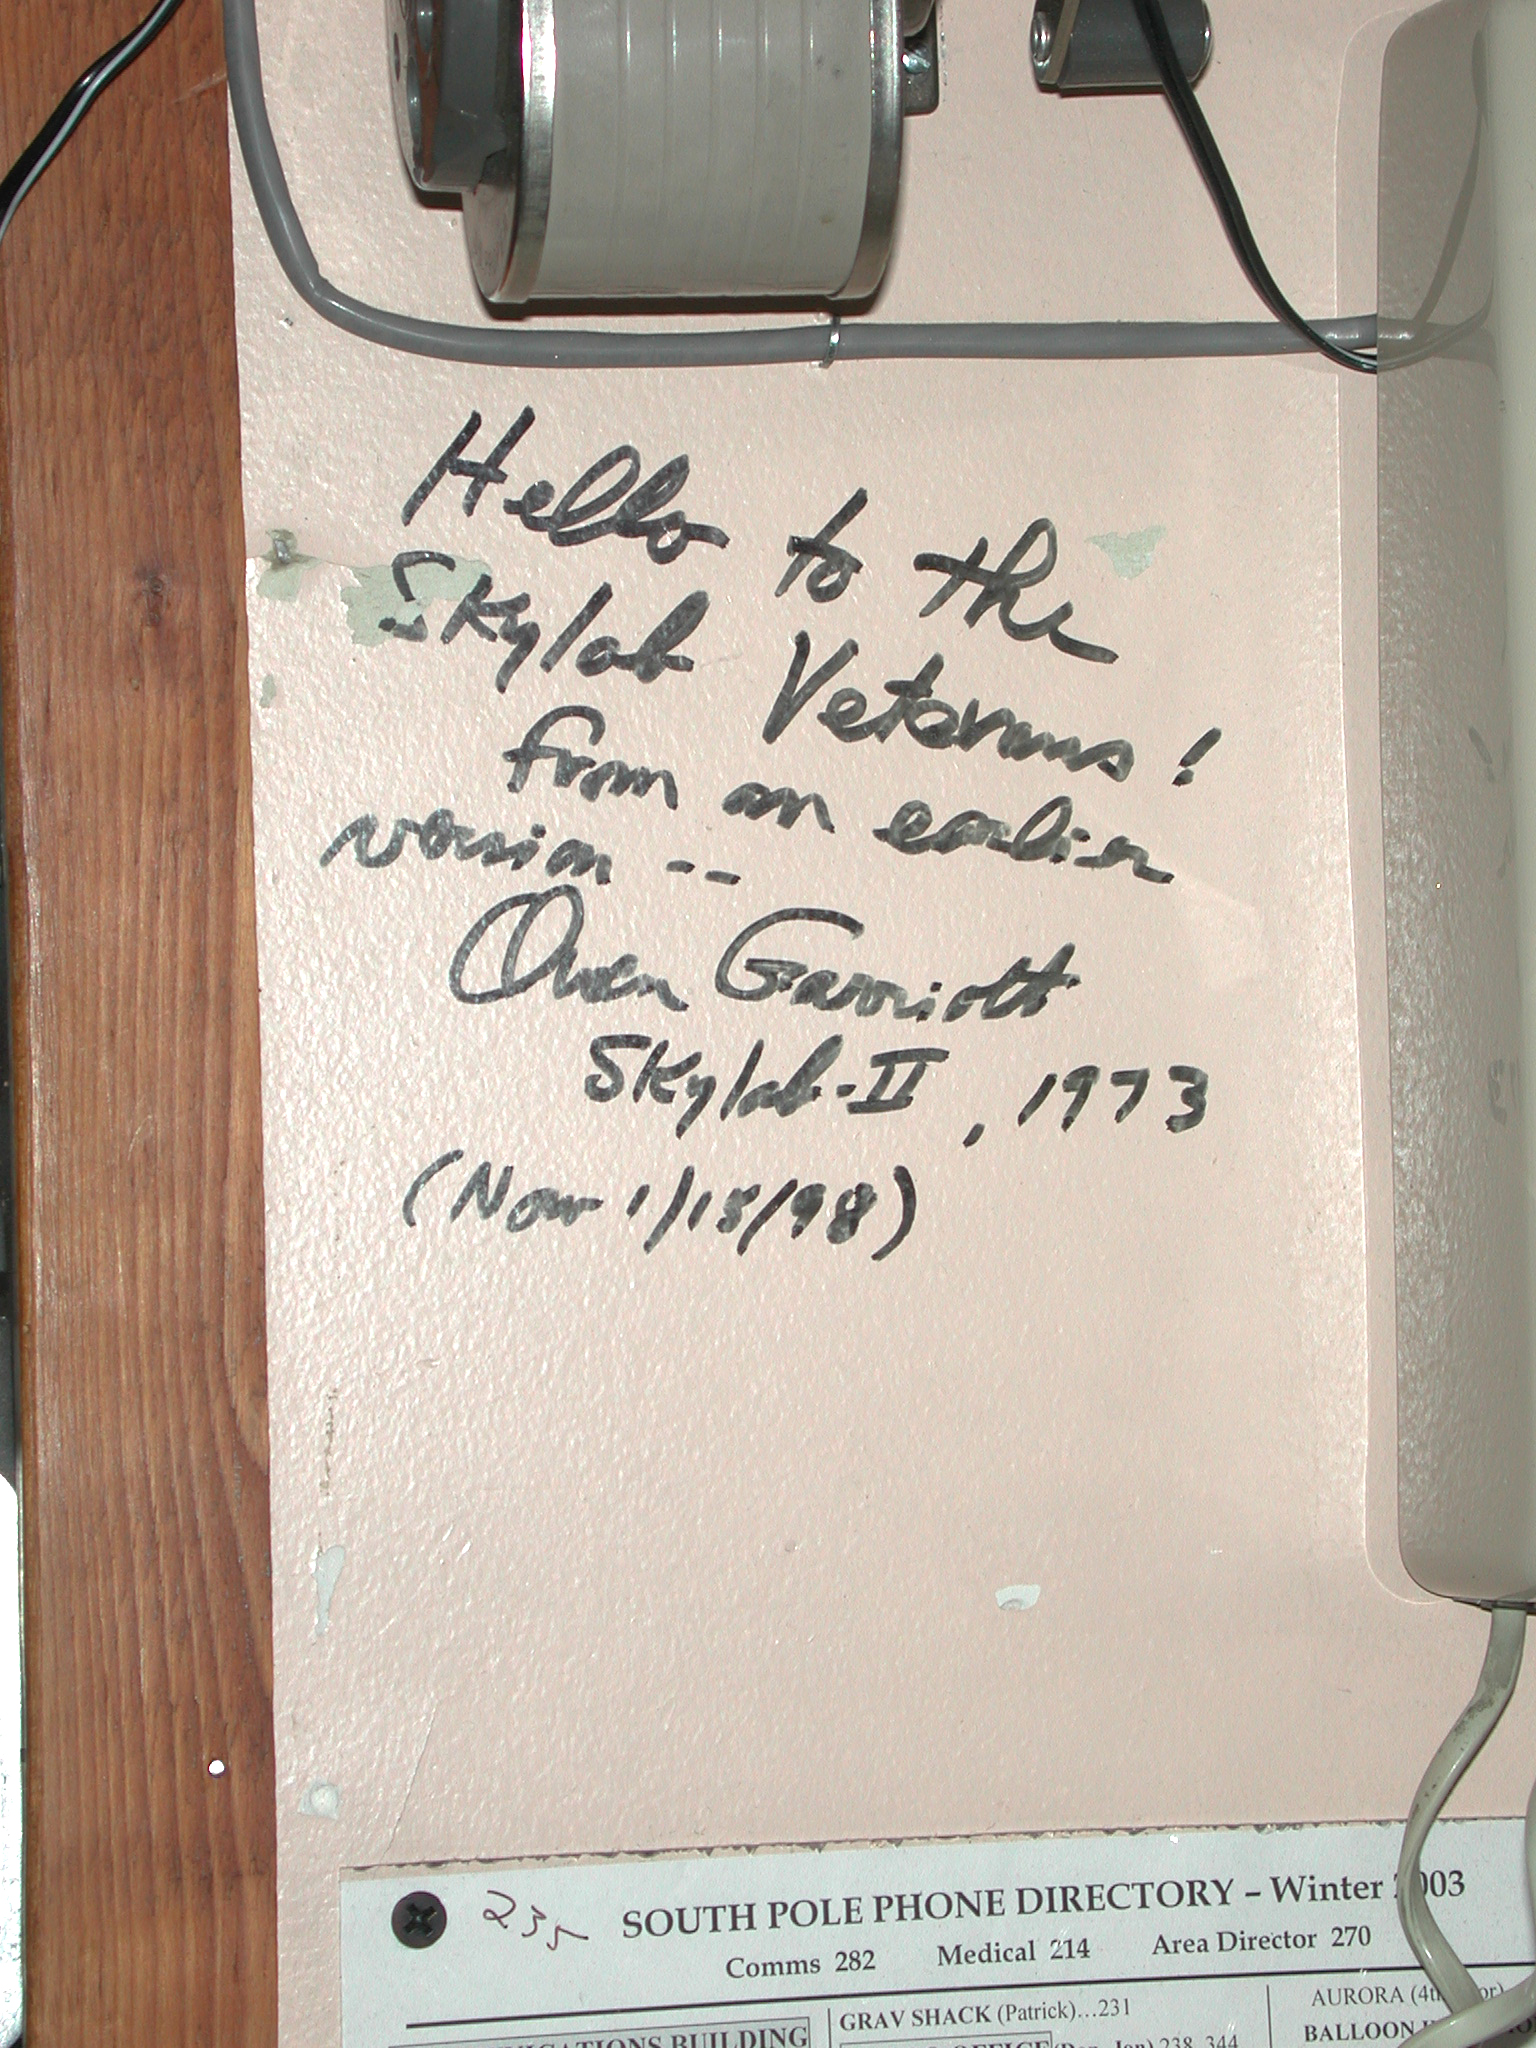 Hello to the
Skylab Veterans!
from an earlier
version --
Owen Garriott
Skylab-II, 1973
(Now 1/15/98)
235
SOUTH POLE PHONE DIRECTORY – Winter 2003
Comms 282 Medical 214 Area Director 270
GRAV SHACK (Patrick)…231
AURORA
BUILDING
OFFICE (Dan, Jon) 238, 344
BALLOON